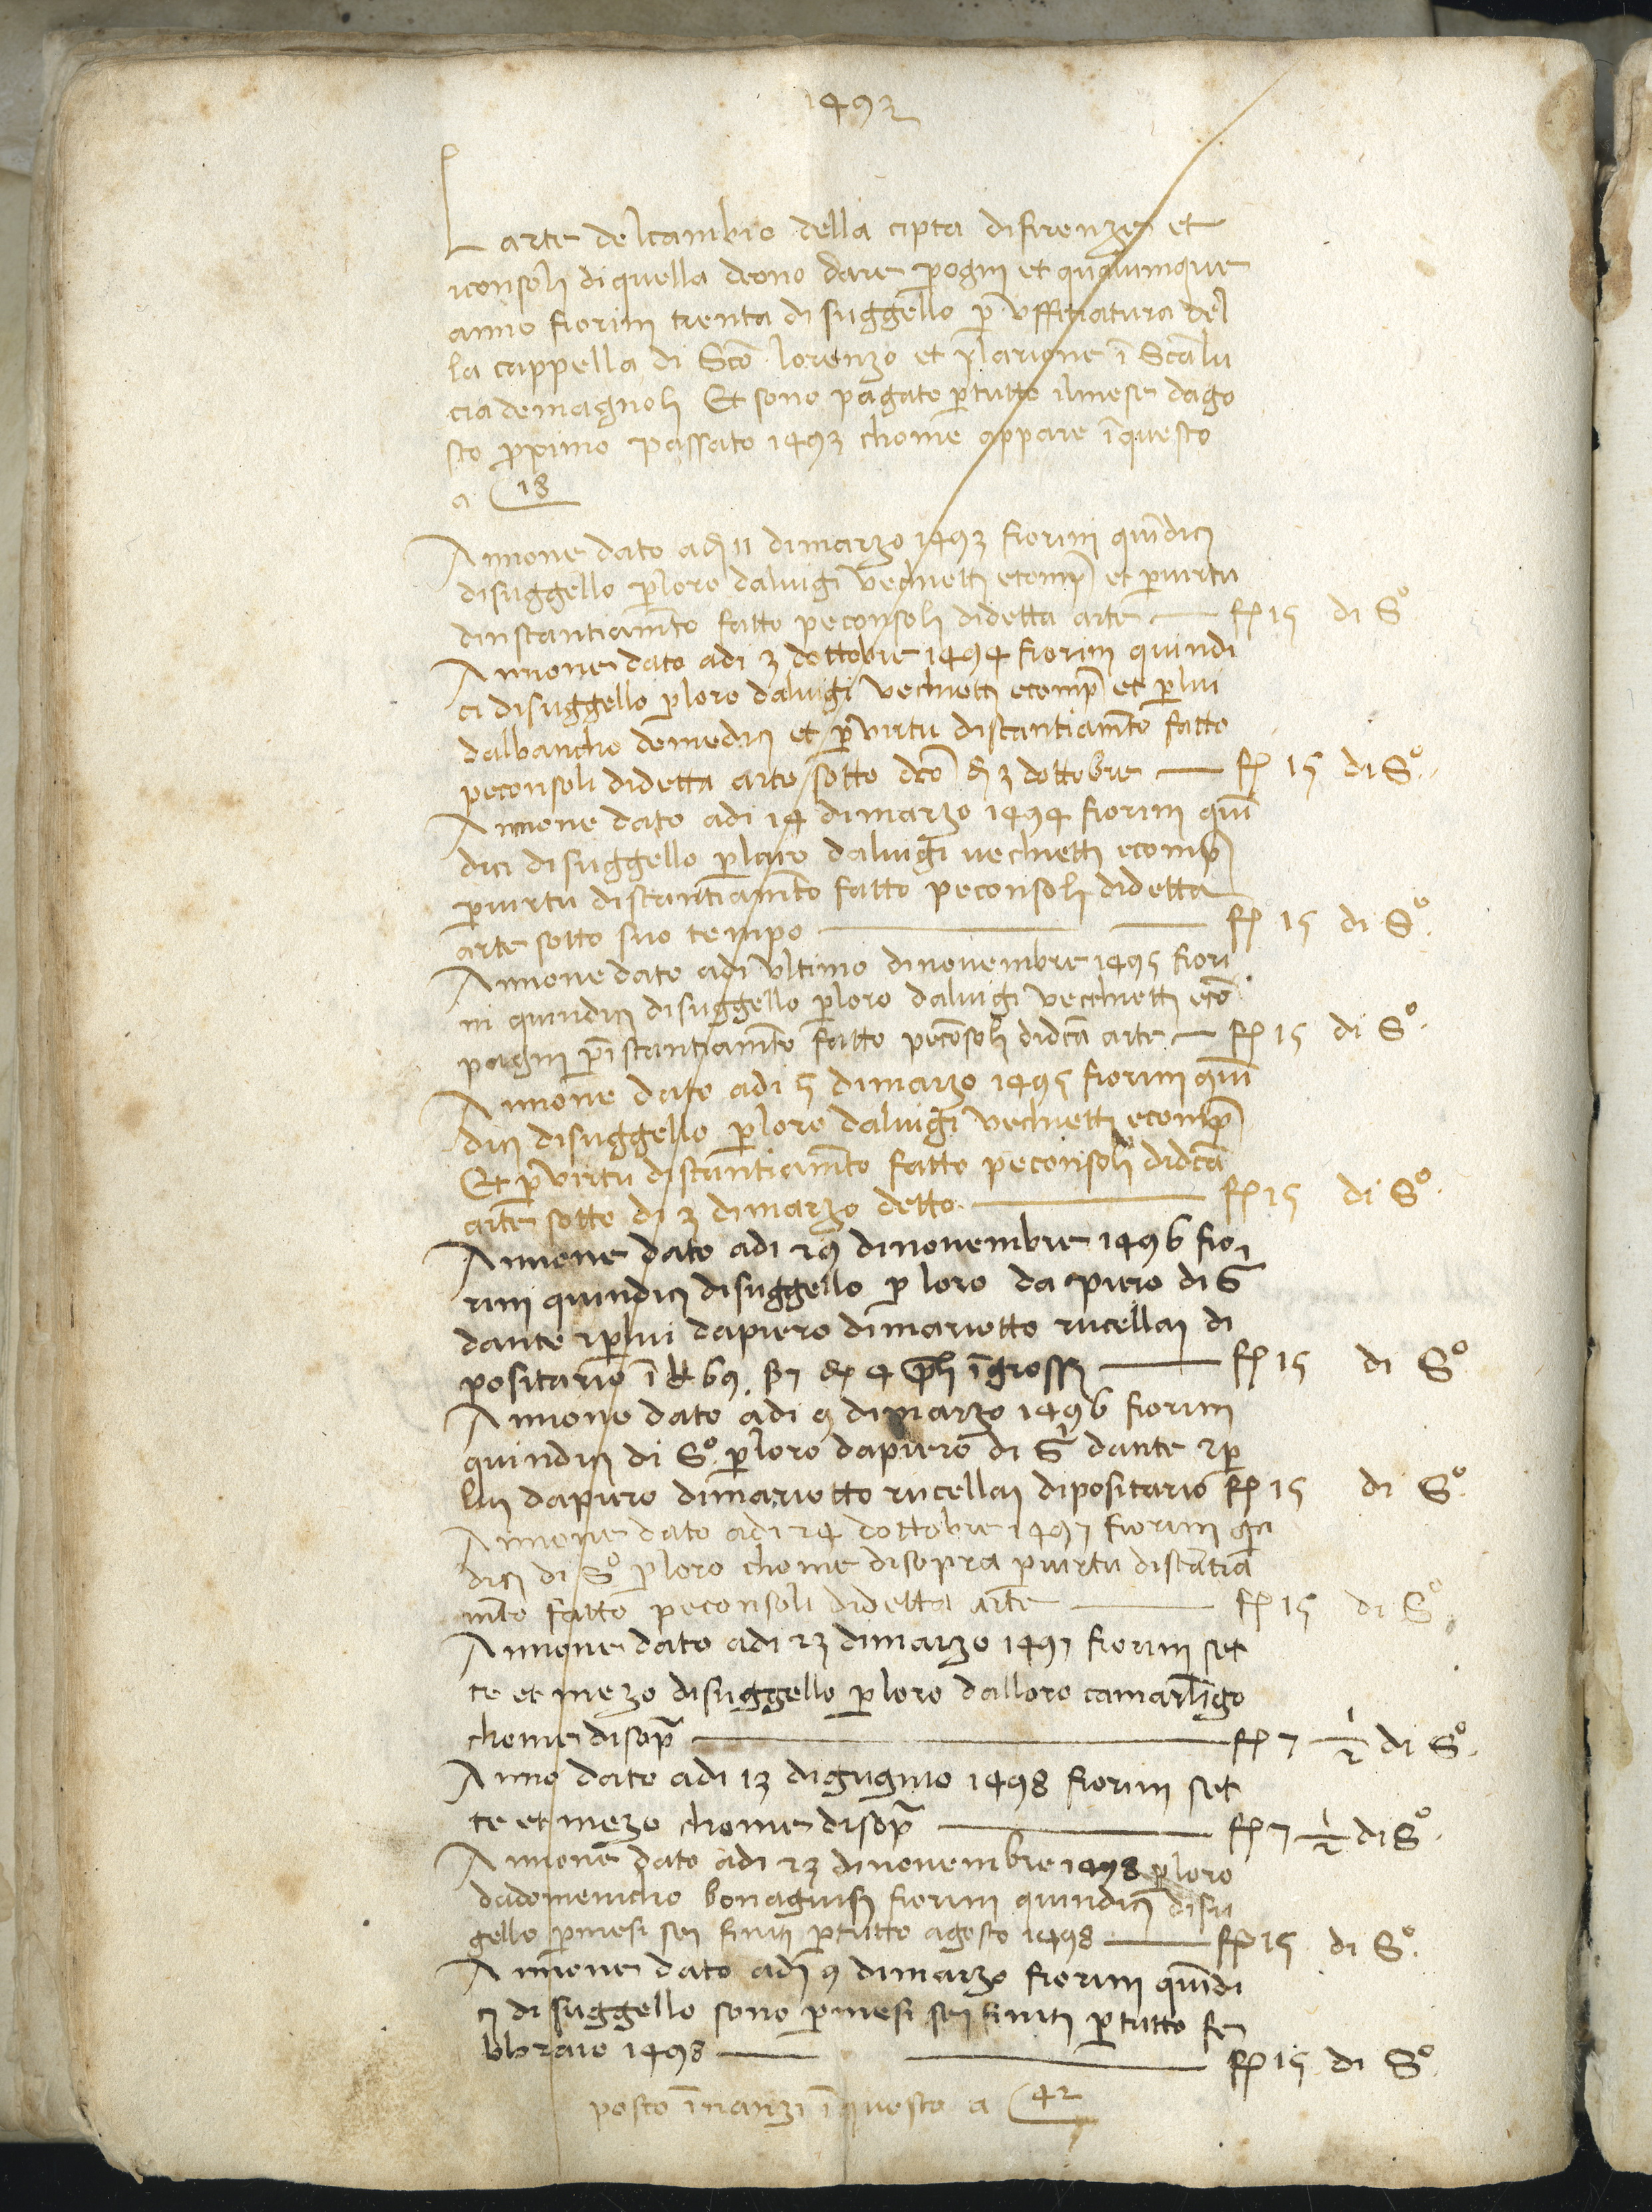 1493
Larte delcambio della cipta difirenze et
iconsoli di quella deono dare p ogni et qualunque
anno fiorini trenta di suggello p ufficiatura del
la cappella di Sco lorenzo et ylarione i Sca lu
cia demagnoli Et sono pagato ptutto ilmese dago
sto pximo passato 1493 chome appare iquesto
a 18
Annone dato adi 11 dimarzo 1493 fiorini quidici
disuggello ploro daluigi vechietti ecomp et puirtu
dinstantiamto fatto peconsoli didetta arte — f 15 di So
Annone dato adi 3 dottobre 1494 fiorini quindi
ci disuggello ploro daluigi vechietti ecomp et plui
dalbancho demedici et pvirtu distantiamto fatto
peconsoli didetta arte sotto dco di 3 dottobre — f 15 di So
Annone dato adi 14 dimarzo 1494 fiorini qui
dici disuggello ploro daluigi uechietti ecomp
puirtu distantiamto fatto peconsoli didetta
arte sotto suo tempo — f 15 di So
Annone dato adi ultimo dinovembre 1495 fiori
ni quindici disuggello ploro daluigi vecchietti eco
pagni p istantiamto fatto pecosoli didca arte — f 15 di So
Annone dato adi 5 dimarzo 1495 fiorini qui
dici disuggello ploro daluigi vechietti ecomp
Et pvirtu distantiamto fatto peconsoli didca
arte sotto di 3 dimarzo detto — f 15 di So
Annone dato adi 29 dinovembre 1496 fio
rini quindici disuggello p loro da piero di S
dante 2 plui dapiero dimariotto rucellai di
positario i 69 7 4 igrossi — f 15 di So
Annone dato adi 9 dimarzo 1496 fiorini
quindici di So ploro dapiero di S dante 2 p
lui dapiero dimariotto rucellai dipositario f 15 di So
Annone dato adi 24 dottobre 1497 fiorini qn
dici di So ploro chome disopra puirtu distatia
mto fatto peconsoli didetta arte — f 15 di So
Annone dato adi 23 dimarzo 1497 fiorini set
te et mezo disuggello ploro dalloro camarligo
chome disopa — f 7 1/2 di So
Anno dato adi 13 digugnio 1498 fiorini set
te et mezo chome disopa — f 7 1/2 di So
Annone dato adi 23 dinovembre 1498 ploro
dadomenicho bonaguisi fiorini quindici disu
gello pmesi sei finiti ptutto agosto 1498 — f 15 di So
Annone dato adi 9 dimarzo fiorini quidi
ci di suggello sono pmesi sei finiti ptutto fe
bbraio 1498 — f 15 di So
posto inanzi iquesto a 42